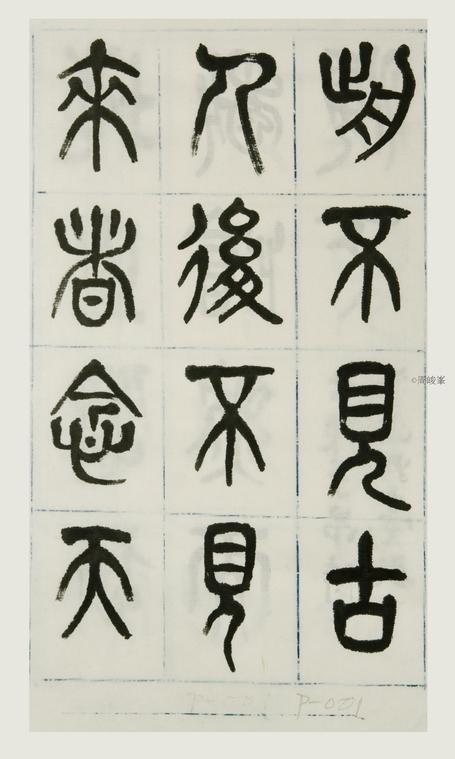 前不見古
人後不見
來者念天
©周峻峯
P-001